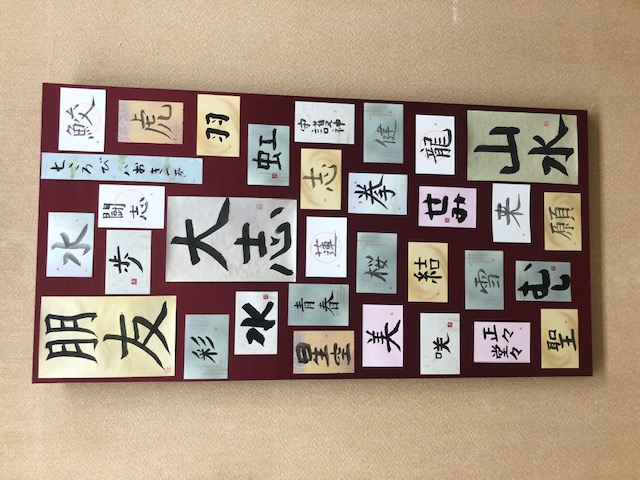 鮫
虎
羽
虹
守護神
健
龍
山水
七ころび八おき
闘志
志
拳
せみ
来
願
水
歩
大志
蓮
桜
結
雪
朋友
彩
水
青春
星空
美
咲
正々
堂々
聖